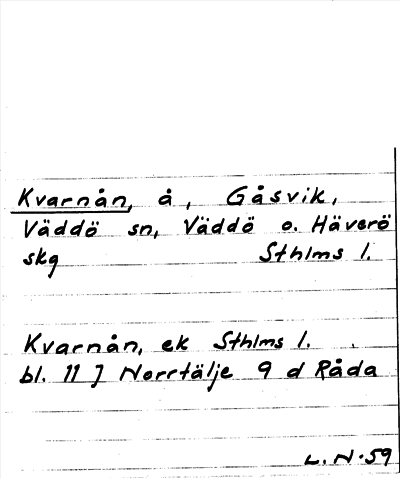 Kvarnån, å, Gåsvik,
Väddö sn, Väddö o. Häverö
skg Sthlms l.
Kvarnån, ek Sthlms l.
bl. 11 J Norrtälje 9 d Råda
L. N-59